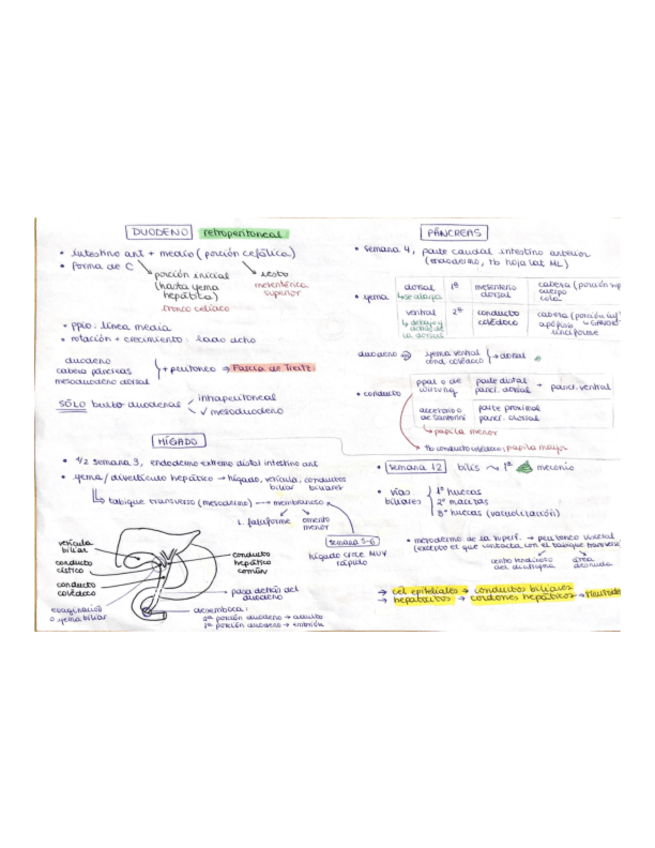 DUODENO retroperitoneal
• intestino ant + medio (porción cefálica)
• forma de C
porción inicial
(hasta yema
hepática)
tronco celíaco
resto
mesentérica
superior
• ppio: línea media
• rotación + crecimiento: lado dcho
duodeno
cabeza páncreas
mesoduodeno dorsal
+ peritoneo → Fascia de Treitz
SÓLO bulbo duodenal
intraperitoneal
✓ mesoduodeno
HÍGADO
• 1/2 semana 3, endodermo extremo distal intestino ant
• yema/divertículo hepático → hígado, vesícula, conductos
biliar biliares
↳ tabique transverso (mesodermo) → membranoso
L. falciforme
omento
menor
semana 5-6
hígado crece MUY
rápido
vesícula
biliar
conducto
cístico
conducto
colédoco
evaginación
o yema biliar
conducto
hepático
común
pasa detrás del
duodeno
desemboca:
2ª porción duodeno → adulto
1ª porción duodeno → embrión
PÁNCREAS
• semana 4, parte caudal intestino anterior
(endodermo, tb hoja lat ML)
• yema
dorsal 1ª mesenterio dorsal cabeza (porción sup
cuerpo
cola
ventral 2ª conducto colédoco cabeza (porción inf)
apófisis
unciforme
duodeno
yema ventral
cond. colédoco
→ dorsal
• conducto
ppal o de
Wirsung
parte distal
páncr. dorsal
+ páncr. ventral
accesorio o
de Santorini
parte proximal
páncr. dorsal
↳ papila menor
tb conducto colédoco, papila mayor
• semana 12 bilis 1º meconio
• vías
biliares
1º huecas
2º macizas
3º huecas (vacuolización)
• mesodermo de la superf. → peritoneo visceral
(excepto el que contacta con el tabique transverso
centro tendinoso
del diafragma
área
desnuda
→ cel epiteliales → conductos biliares
→ hepatocitos → cordones hepáticos →